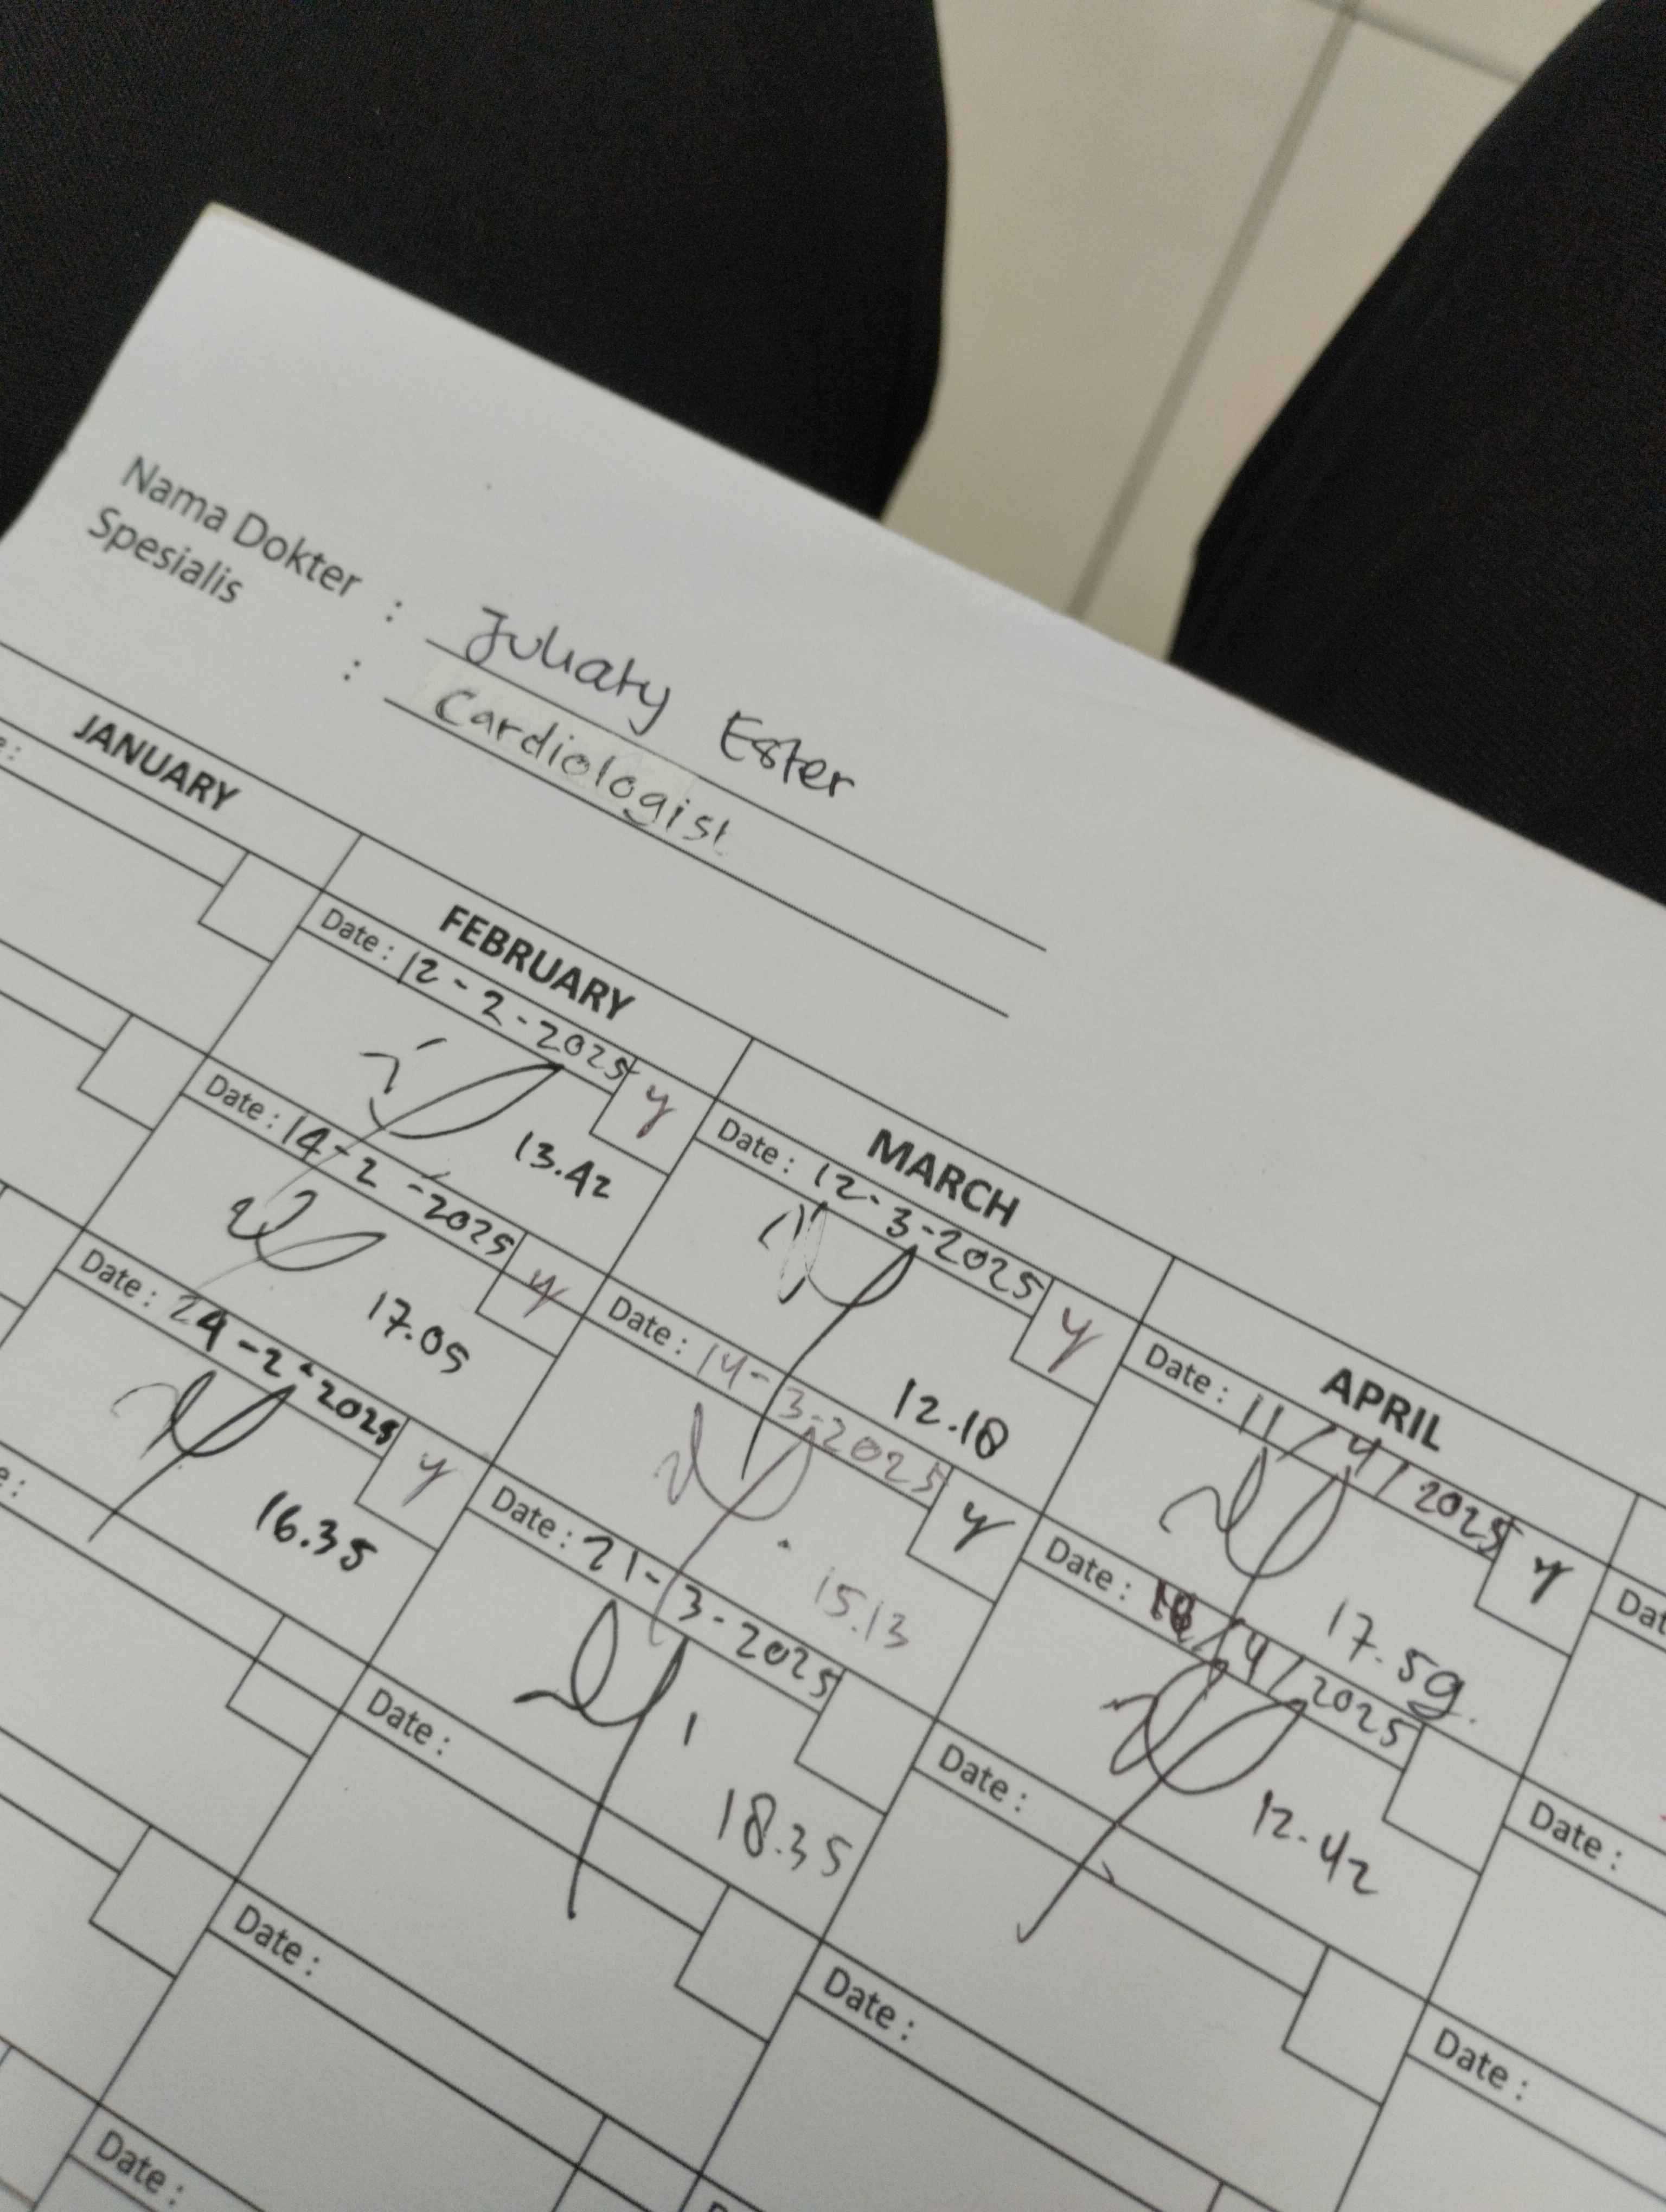 Nama Dokter : Juliaty Ester
Spesialis : Cardiologist
JANUARY FEBRUARY MARCH APRIL
Date : 12-2-2025 y
13.42
Date : 14-2-2025 y
17.05
Date : 24-2-2025 y
16.35
Date : 12-3-2025 y
12.18
Date : 14-3-2025 y
15.13
Date : 21-3-2025
18.35
Date :
Date :
Date :
Date : 11/4/2025 y
17.59
Date : /4/2025
12.42
Date :
Date :
Date :
Date :